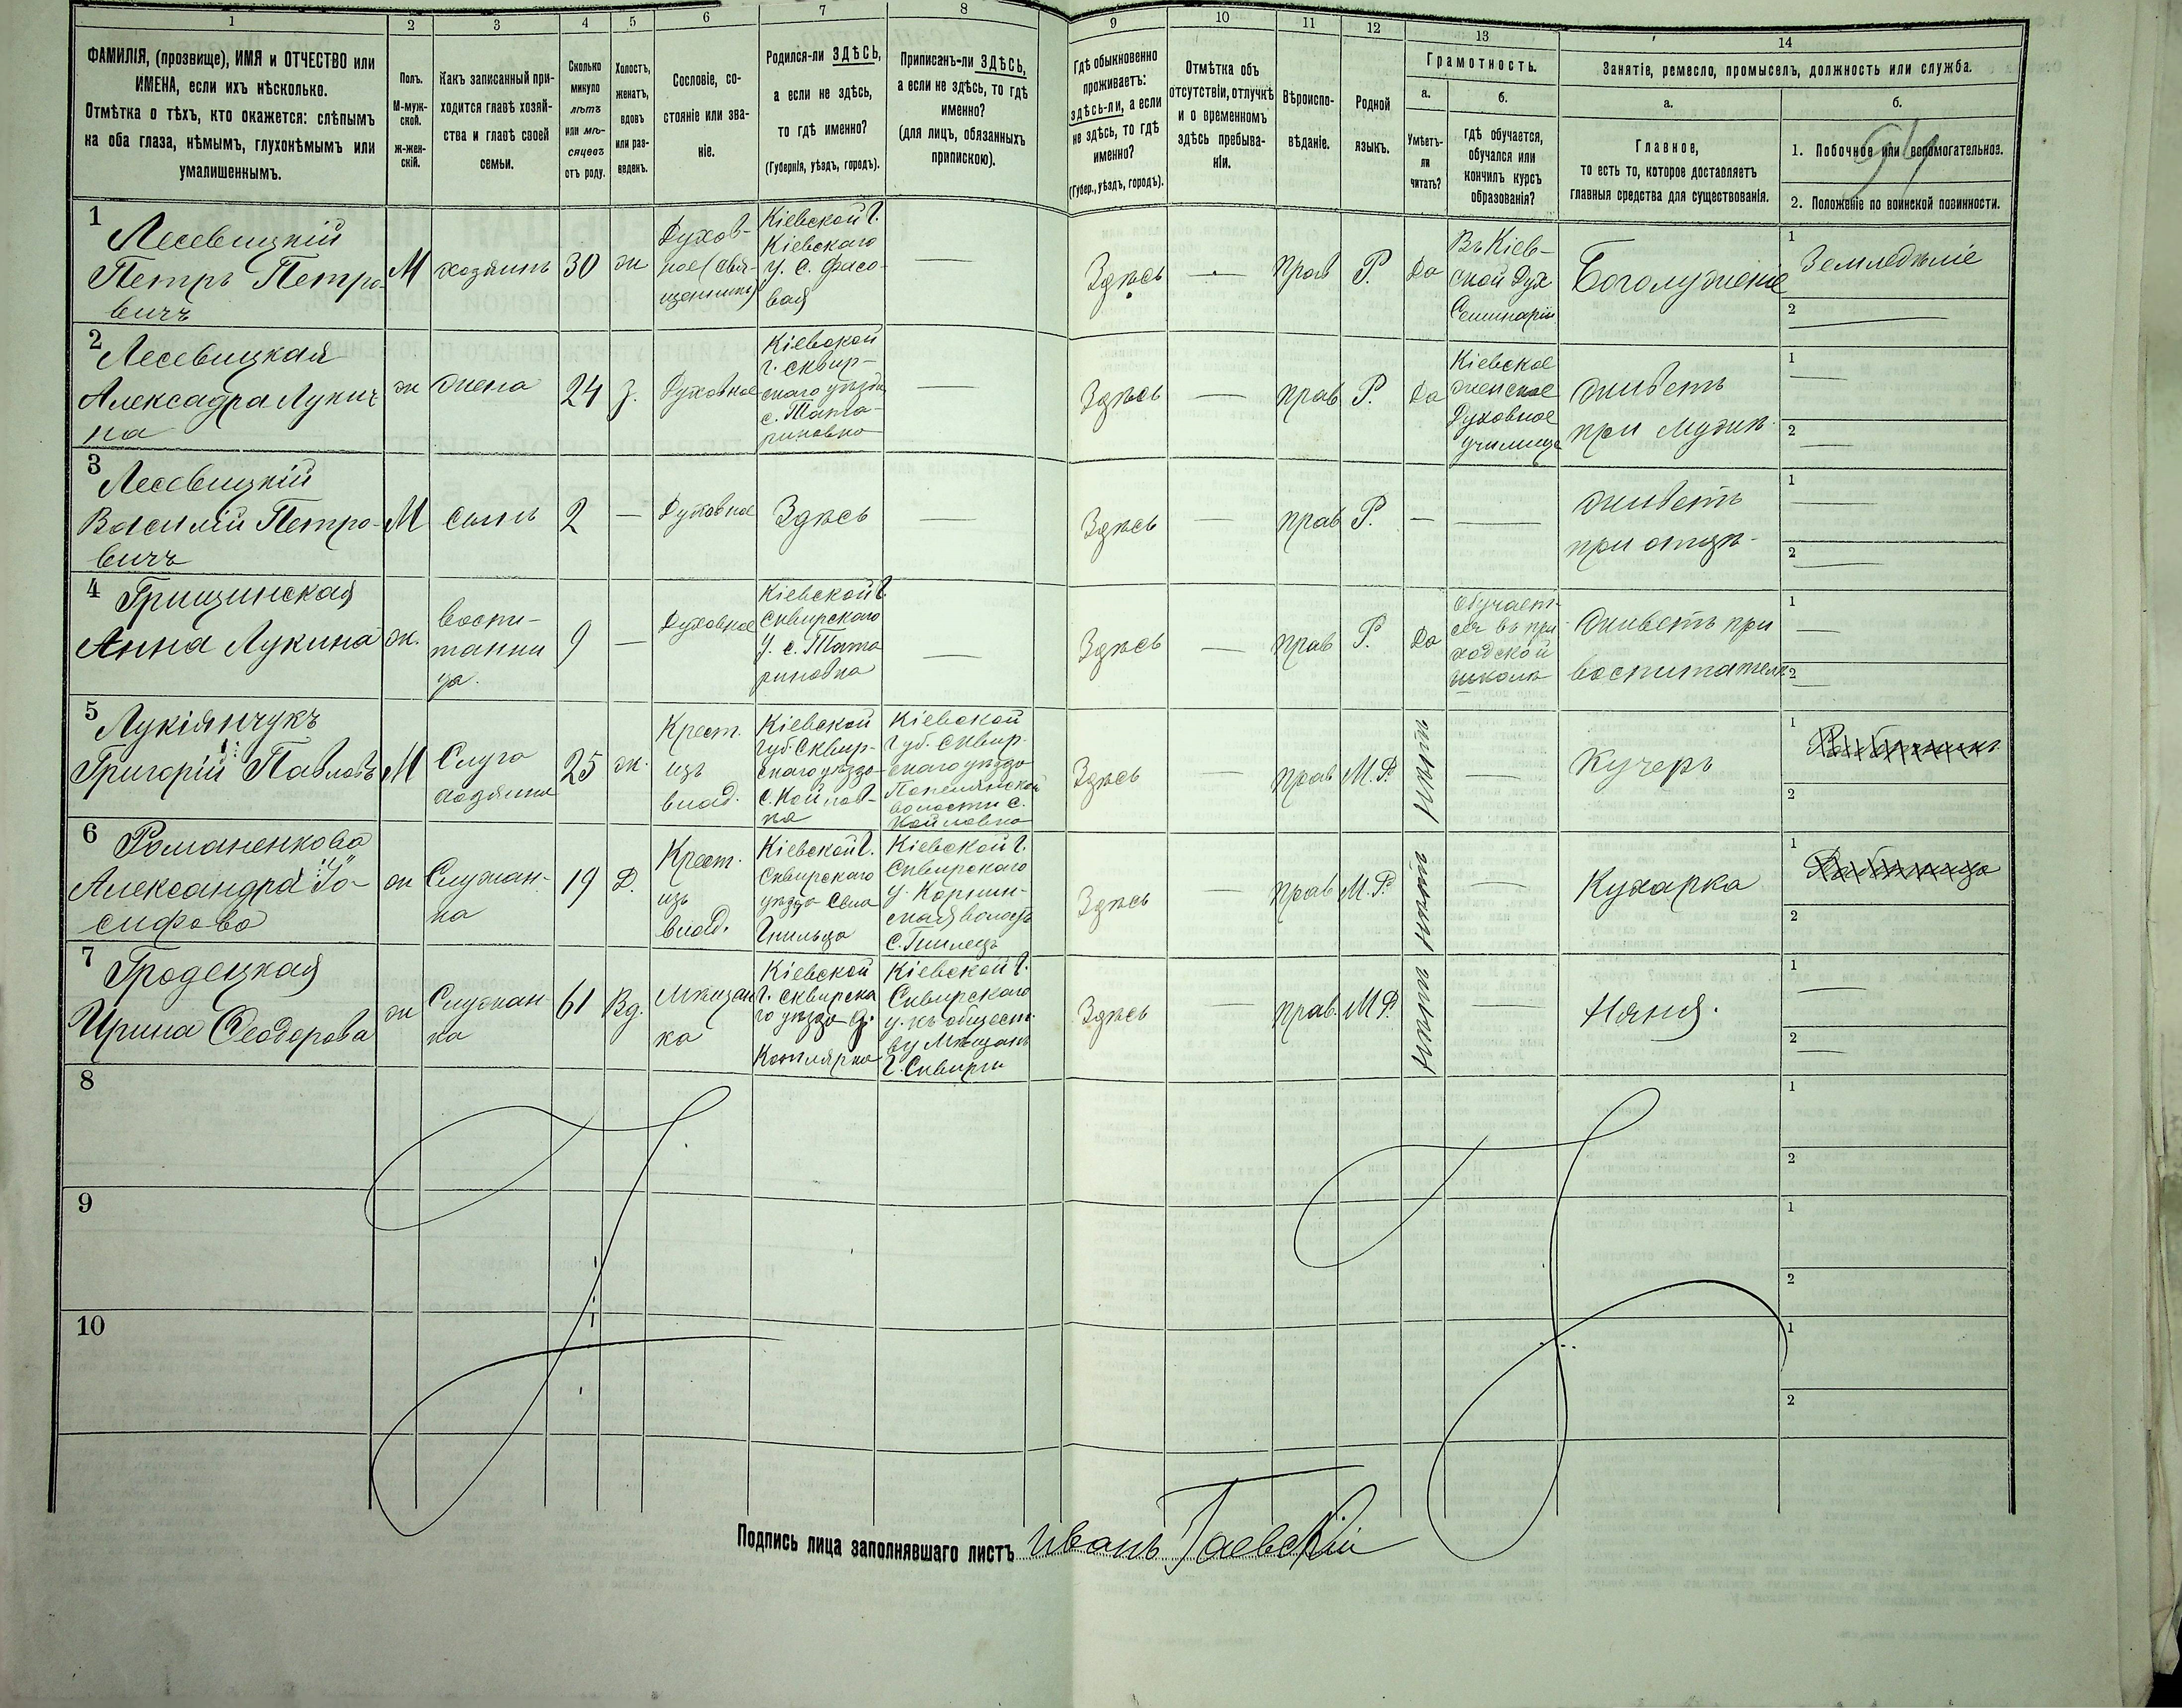 1 2 3 4 5 6 7 8 9 10 11 12 13 14
ФАМИЛІЯ, (прозвище), ИМЯ и ОТЧЕСТВО или
ИМЕНА, если ихъ нѣсколько.
Отмѣтка о тѣхъ, кто окажется: слѣпымъ
на оба глаза, нѣмымъ, глухонѣмымъ или
умалишеннымъ.
Полъ.
М-муж-
ской.
ж-жен-
скій.
Какъ записанный при-
ходится главѣ хозяй-
ства и главѣ своей
семьи.
Сколько
минуло
лѣтъ
или мѣ-
сяцевъ
отъ роду.
Холостъ,
женатъ,
вдовъ
или раз-
веденъ.
Сословіе, со-
стояніе или зва-
ніе.
Родился-ли ЗДѢСЬ,
а если не здѣсь,
то гдѣ именно?
(Губернія, уѣздъ, городъ).
Приписанъ-ли ЗДѢСЬ,
а если не здѣсь, то гдѣ
именно?
(для лицъ, обязанныхъ
припискою).
Гдѣ обыкновенно
проживаетъ:
здѣсь-ли, а если
не здѣсь, то гдѣ
именно?
(Губер., уѣздъ, городъ).
Отмѣтка объ
отсутствіи, отлучкѣ
и о временномъ
здѣсь пребыва-
ніи.
Вѣроиспо-
вѣданіе.
Родной
языкъ.
Грамотность.
а.
Умѣетъ-
ли
читать?
б.
гдѣ обучается,
обучался или
кончилъ курсъ
образованія?
Занятіе, ремесло, промыселъ, должность или служба.
а.
Главное,
то есть то, которое доставляетъ
главныя средства для существованія.
б.
94
1. Побочное или вспомогательное.
2. Положеніе по воинской повинности.
1
Лесевицкій
Петръ Петро-
вичъ
М
хозяинъ
30
ж
Духов-
ное (свя-
щенникъ)
Кіевской Г.
Кіевскаго
у. с. Фасо-
вая
—
Здѣсь
—
прав
Р.
Да
Въ Кіев-
ской Дух
Семинаріи
Богослуженіе
1
Земледѣліе
2
—
2
Лесевицкая
Александра Лукич
на
ж
жена
24
З.
Духовное
Кіевской
г. Сквир-
скаго уѣзда
с. Тата-
риновка
—
Здѣсь
—
прав
Р.
Да
Кіевское
женское
Духовное
училище
живетъ
при мужѣ.
1
—
2
—
3
Лесевицкій
Василій Петро-
вичъ
М
сынъ
2
—
Духовное
Здѣсь
—
Здѣсь
—
прав
Р.
—
—
живетъ
при отцѣ-
1
—
2
—
4
Грищинская
Анна Лукина
ж.
воспи-
танни
ца.
9
—
Духовное
Кіевской Г.
Сквирскаго
у. с. Тата
риновка
—
Здѣсь
—
прав
Р.
Да
обучает-
ся въ при
ходской
школѣ
живетъ при
воспитателѣ
1
—
2
—
5
Лукіянчукъ
Григорій Павловъ
М
Слуга
хозяина
25
ж.
Крест.
изъ
влад.
Кіевской
Губ. Сквир-
скаго уѣзда
с. Койлов-
ка
Кіевской
Губ. Сквир-
скаго уѣзда
волости с.
Койловка
Здѣсь
—
прав
М.Р
нѣтъ
—
Кучеръ
1
2
6
Романенкова
Александра Іо-
сифова
ж
Служан-
ка
19
Д.
Крест.
изъ
влад.
Кіевской Г.
Сквирскаго
уѣзда Села
Гнильца
Кіевской Г.
Сквирскаго
у. Корнин-
ская волость
с. Гнилецъ
Здѣсь
—
прав
М.Р
нѣтъ
—
Кухарка
1
2
7
Гродецкая
Ирина Ѳеодорова
ж
Служан-
ка
61
Вд.
Мѣщан
ка
Кіевской
Г. Сквирска
го уѣзда д.
Котлярка
Кіевской Г.
Сквирскаго
у. къ общест-
ву Мѣщанъ
г. Сквиры
Здѣсь
прав.
М.Р.
нѣтъ
—
Няня.
1
—
2
—
8
1
2
9
1
2
10
1
2
Подпись лица заполнявшаго листъ Иванъ Гаевскій